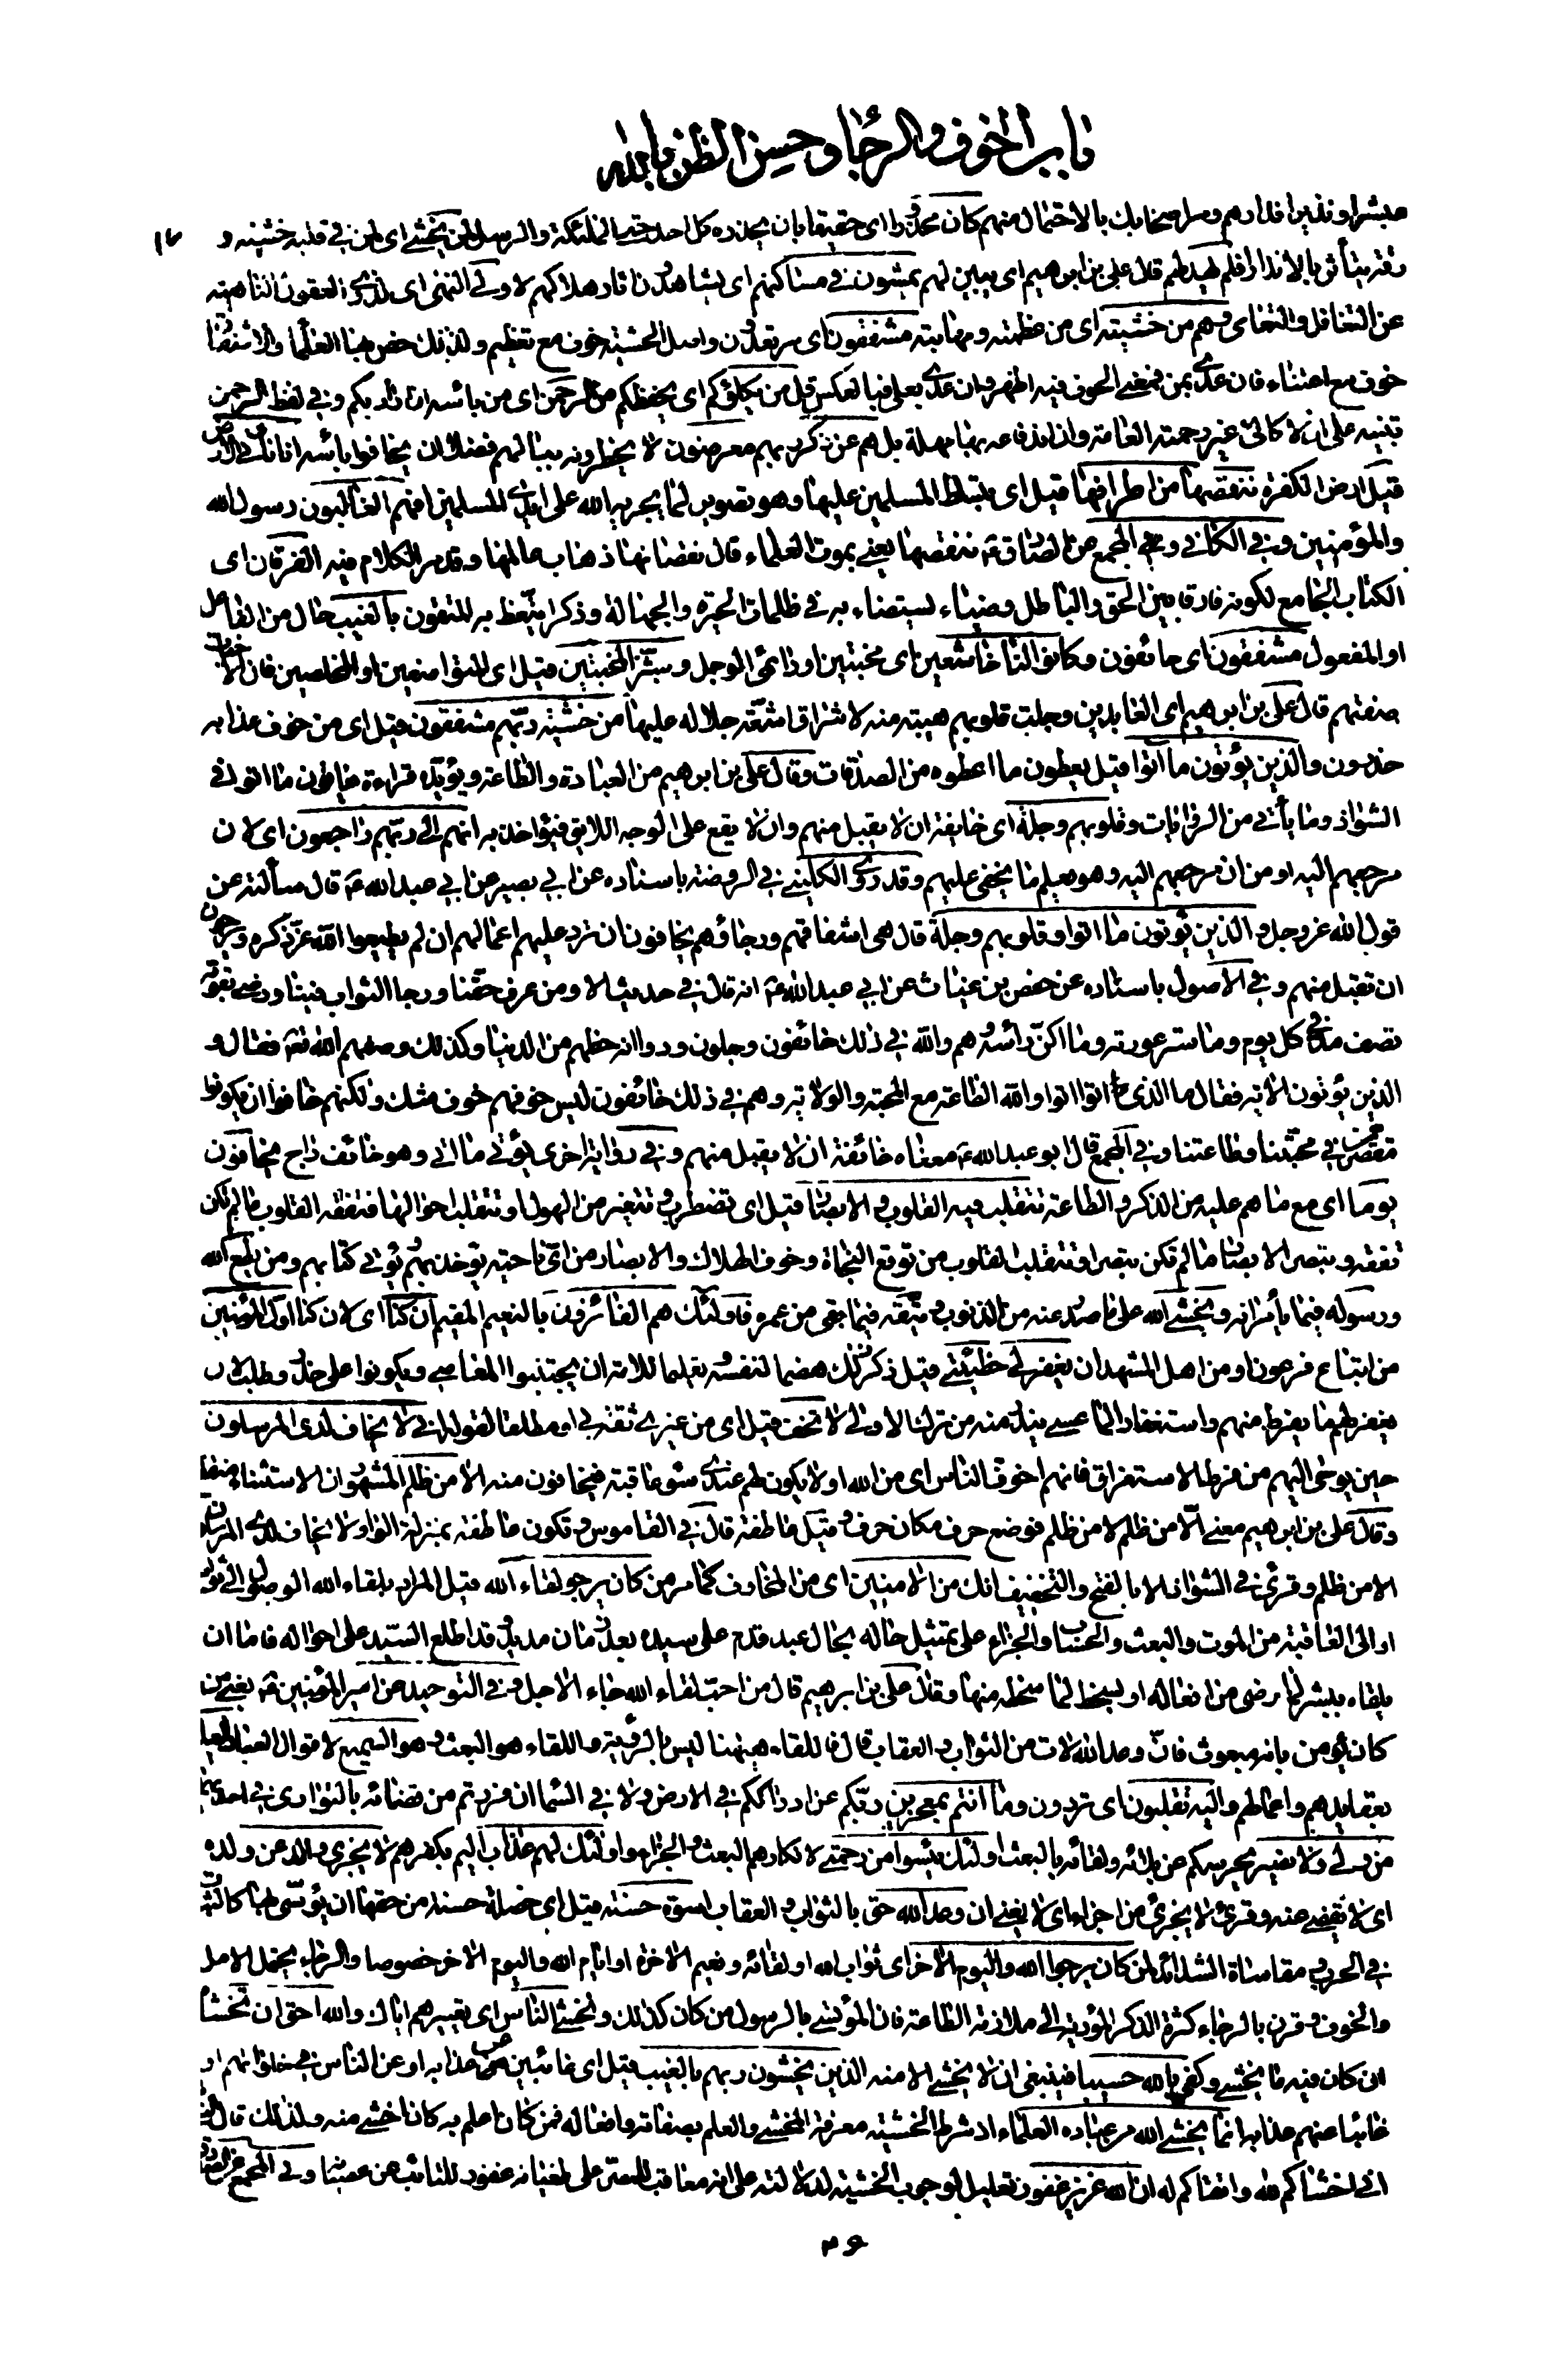 باب الخوف والرجا وحسن الظن بالله
مبشرا ونذيرا فدارهم وسل صحابك بالاحتمال منهم كان محذورا اى حقيقا بان يحذره كل احد حتى الملئكة والرسل لمن يخشى اى لمن فى قلبه خشية و
رقة يتأثر بالانذار افلم يهد لهم قال على بن ابرهيم اى يبين لهم يمشون فى مساكنهم اى يشاهدون اثار هلاكهم لاولى النهى اى لذوى العقول الناهية
عن التغافل والتعامى وهم من خشيته اى من عظمته ومهابته مشفقون اى مرتعدون واصل الخشية خوف مع تعظيم ولذلك خص بها العلماء والاشفاق
خوف مع اعتناء فان عدى بمن فمعنى الخوف فيه اظهر وان عدى بعلى فبالعكس قل من يكلؤكم اى يحفظكم من الرحمن اى من بأسه ان اراد بكم وفى لفظ الرحمن
تنبيه على ان لا كالئ غير رحمته العامة وان اندفاعه بها مهلة بل هم عن ذكر ربهم معرضون لا يخطرونه ببالهم فضلا ان يخافوا بأسه انا نأتى الارض
قيل ارض الكفرة ننقصها من اطرافها قيل اى بتسلط المسلمين عليها وهو تصوير لما يجريه الله على ايدى المسلمين افهم الغالبون رسول الله
والمؤمنين وفى الكافى وفى المجمع عن الصادق ع ننقصها يعنى بموت العلماء قال نقصانها ذهاب عالمها وقد مر الكلام فيه الفرقان اى
الكتاب الجامع لكونه فارقا بين الحق والباطل وضياء يستضاء به فى ظلمات الحيرة والجهالة وذكرا يتعظ به المتقون بالغيب حال من الفاعل
او المفعول مشفقون اى خائفون وكانوا لنا خاشعين اى مخبتين او دائمى الوجل وبشر المخبتين قيل اى المتواضعين او المخلصين فان الاخبات
صفتهم قال على بن ابرهيم اى العابدين وجلت قلوبهم هيبة منه لاشراق اشعة جلاله عليها من خشية ربهم مشفقون قيل اى من خوف عذابه
حذرون والذين يؤتون ما اتوا قيل يعطون ما اعطوه من الصدقات وقال على بن ابرهيم من العبادة والطاعة ويؤيده قراءة يأتون ما اتوا فى
الشواذ وما يأتى من الروايات وقلوبهم وجلة اى خايفة ان لا يقبل منهم وان لا يقع على الوجه اللايق فيؤاخذ به انهم الى ربهم راجعون اى لان
مرجعهم اليه او من ان مرجعهم اليه وهو يعلم ما يخفى عليهم وقد روى الكلينى فى الروضة باسناده عن ابى بصير عن ابى عبد الله ع قال سألته عن
قول الله عز وجل والذين يؤتون ما اتوا وقلوبهم وجلة قال هى اشفاقهم ورجاؤهم يخافون ان ترد عليهم اعمالهم ان لم يطيعوا الله عز ذكره ويرجون
ان تقبل منهم وفى الاصول باسناده عن حفص بن غياث عن ابى عبد الله ع انه قال فى حديث الا ومن عرف حقنا ورجا الثواب فينا ورضى بقوته
نصف مد فى كل يوم وما ستر عورته وما اكن رأسه وهم والله فى ذلك خائفون وجلون ودوا انه حظهم من الدنيا وكذلك وصفهم الله تع فقال و
الذين يؤتون الاية فقال ما الذى اتوا اتوا والله الطاعة مع المحبة والولاية وهم فى ذلك خائفون ليس خوفهم خوف شك ولكنهم خافوا ان يكونوا
مقصرين فى محبتنا وطاعتنا وفى المجمع قال ابو عبد الله ع معناه خائفة ان لا يقبل منهم وفى رواية اخرى يؤتى ما اتى وهو خائف راج يخافون
يوما اى مع ما هم عليه من الذكر والطاعة تتقلب فيه القلوب والابصار قيل اى تضطرب وتتغير من الهول او تتقلب احوالها فتفقه القلوب ما لم تكن
تفقه وتبصر الابصار ما لم تكن تبصر او تتقلب القلوب من توقع النجاة وخوف الهلاك والابصار من اى ناحية يؤخذ بهم ويؤتى كتابهم ومن يطع الله
ورسوله فيما يأمرانه ويخشى الله على ما صدر عنه من الذنوب ويتقه فيما بقى من عمره فاولئك هم الفائزون بالنعيم المقيم ان كنا اى لان كنا اول المؤمنين
من اتباع فرعون او من اهل المشهد ان يغفر لى خطيئتى قيل ذكر ذلك هضما لنفسه وتعليما للامة ان يجتنبوا المعاصى ويكونوا على حذر وطلب لان
يغفر لهم ما يفرط منهم واستغفارا لما عسى يندر منه من ترك الاولى لا تخف قيل اى من غيرى ثقة بى او مطلقا لقوله انى لا يخاف لدى المرسلون
حين يوحى اليهم من فرط الاستغراق فانهم اخوف الناس اى من الله او لا يكون لهم عندى سوء عاقبة فيخافون منه الا من ظلم المشهور ان الاستثناء منقطع
وقال على بن ابرهيم معنى الا من ظلم لا من ظلم فوضع حرف مكان حرف وقيل عاطفة قال فى القاموس وتكون عاطفة بمنزلة الواو لا يخاف لدى المرسلون
الا من ظلم وقرئ فى الشواذ الا بالفتح والتخفيف انك من الامنين اى من المخاوف كما مر من كان يرجو لقاء الله قيل المراد بلقاء الله الوصول الى ثوابه
او الى العاقبة من الموت والبعث والحساب والجزاء على تمثيل حاله بحال عبد قدم على سيده بعد زمان مديد وقد اطلع السيد على احواله فاما ان
يلقاه ببشر لما رضى من افعاله او بسخط لما سخط منها وقال على بن ابرهيم قال من احب لقاء الله جاءه الاجل وفى التوحيد عن امير المؤمنين ع يعنى من
كان يؤمن بانه مبعوث فان وعد الله لات من الثواب والعقاب قال فاللقاء ههنا ليس بالرؤية واللقاء هو البعث وهو السميع لاقوال العباد العليم
بعقايدهم واعمالهم واليه تقلبون اى تردون وما انتم بمعجزين ربكم عن ادراككم فى الارض ولا فى السماء ان فررتم من قضائه بالتوارى فى احدهما
من ولى ولا نصير يحرسكم عن بلائه ولقائه بالبعث اولئك يئسوا من رحمتى لانكارهم البعث والجزاء واولئك لهم عذاب اليم بكفرهم لا يجزى والد عن ولده
اى لا يقضى عنه وقرئ لا يجزئ من اجزاء اى لا يغنى ان وعد الله حق بالثواب والعقاب اسوة حسنة قيل اى خصلة حسنة من حقها ان يؤتسى بها كالثبات
فى الحرب ومقاساة الشدائد لمن كان يرجوا الله واليوم الاخر اى ثواب الله او لقائه ونعيم الاخرة او ايام الله واليوم الاخر خصوصا والرجاء يحتمل الامل
والخوف وقرن بالرجاء كثرة الذكر المؤدية الى ملازمة الطاعة فان المؤتسى بالرسول من كان كذلك وتخشى الناس اى تعييرهم اياك والله احق ان تخشاه
ان كان فيه ما يخشى وكفى بالله حسيبا فينبغى ان لا يخشى الا منه الذين يخشون ربهم بالغيب قيل اى غائبين عن عذابه او عن الناس فى خلواتهم او
غائبا عنهم عذابه انما يخشى الله من عباده العلماء اذ شرط الخشية معرفة المخشى والعلم بصفاته وافعاله فمن كان اعلم به كان اخشى منه ولذلك قال
انى اخشاكم لله واتقاكم له ان الله عزيز غفور تعليل لوجوب الخشية لدلالته على انه معاقب للمصر على طغيانه غفور للتائب عن عصيانه وفى المجمع عن الصادق